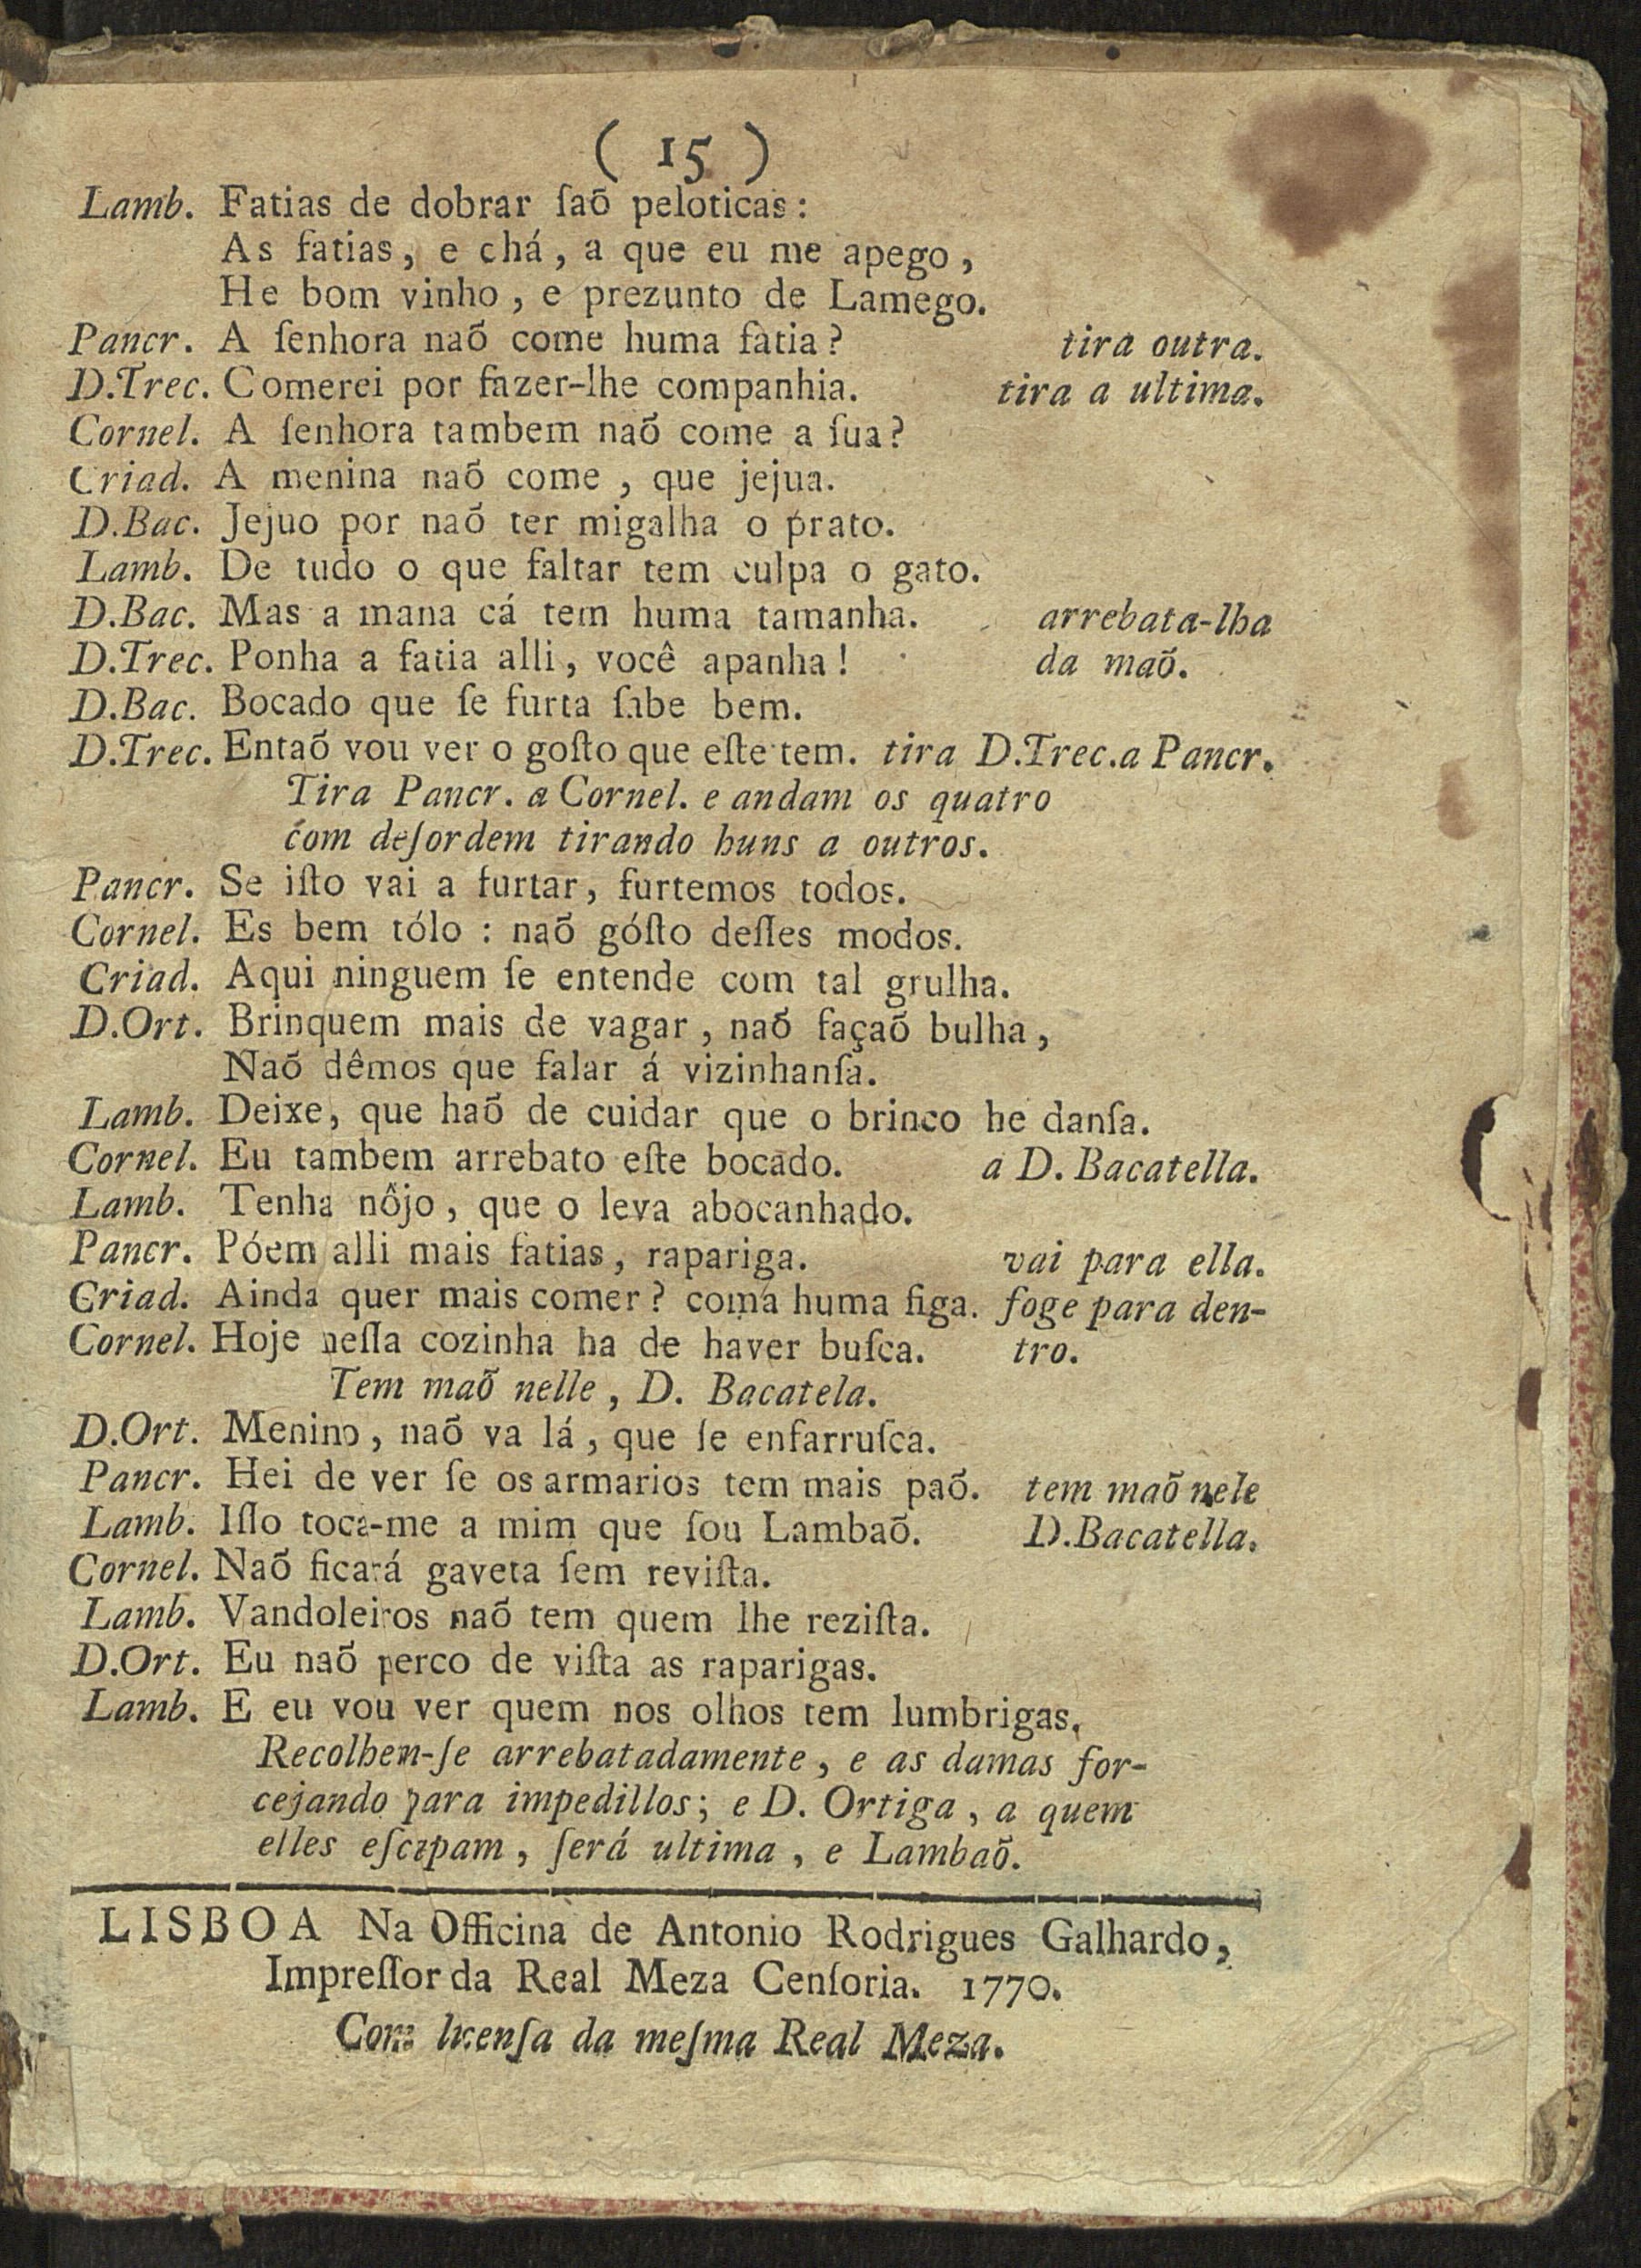 ( 15 )
Lamb. Fatias de dobrar ſaõ peloticas:
As fatias, e chá, a que eu me apego,
He bom vinho, e prezunto de Lamego.
Pancr. A ſenhora naõ come huma fatia? tira outra.
D.Trec. Comerei por fazer-lhe companhia. tira a ultima.
Cornel. A ſenhora tambem naõ come a ſua?
Criad. A menina naõ come, que jejua.
D.Bac. Jejuo por naõ ter migalha o prato.
Lamb. De tudo o que faltar tem culpa o gato.
D.Bac. Mas a mana cá tem huma tamanha. arrebata-lha
D.Trec. Ponha a fatia alli, você apanha! da maõ.
D.Bac. Bocado que ſe furta ſabe bem.
D.Trec. Entaõ vou ver o goſto que eſte tem. tira D.Trec.a Pancr.
Tira Pancr. a Cornel. e andam os quatro
com deſordem tirando huns a outros.
Pancr. Se iſto vai a furtar, furtemos todos.
Cornel. Es bem tólo : naõ góſto deſſes modos.
Criad. Aqui ninguem ſe entende com tal grulha.
D.Ort. Brinquem mais de vagar, naõ façaõ bulha,
Naõ dêmos que falar á vizinhanſa.
Lamb. Deixe, que haõ de cuidar que o brinco he danſa.
Cornel. Eu tambem arrebato eſte bocado. a D. Bacatella.
Lamb. Tenha nôjo, que o leva abocanhado.
Pancr. Póem alli mais fatias, rapariga. vai para ella.
Criad. Ainda quer mais comer? coma huma figa. foge para den-
Cornel. Hoje neſſa cozinha ha de haver buſca. tro.
Tem maõ nelle, D. Bacatela.
D.Ort. Menino, naõ va lá, que ſe enfarruſca.
Pancr. Hei de ver ſe os armarios tem mais paõ. tem maõ nele
Lamb. Iſſo toca-me a mim que ſou Lambaõ. D.Bacatella.
Cornel. Naõ ficará gaveta ſem reviſta.
Lamb. Vandoleiros naõ tem quem lhe reziſta.
D.Ort. Eu naõ perco de viſta as raparigas.
Lamb. E eu vou ver quem nos olhos tem lumbrigas,
Recolhem-ſe arrebatadamente, e as damas for-
cejando para impedillos; e D. Ortiga, a quem
elles eſcapam, ſerá ultima, e Lambaõ.
LISBOA Na Officina de Antonio Rodrigues Galhardo,
Impreſſor da Real Meza Cenſoria. 1770.
Com licenſa da meſma Real Meza.